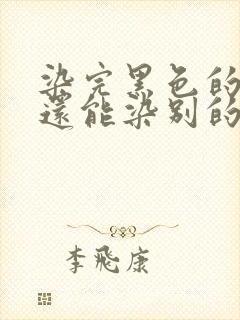 染完黑色的
還能染别的
李飛康